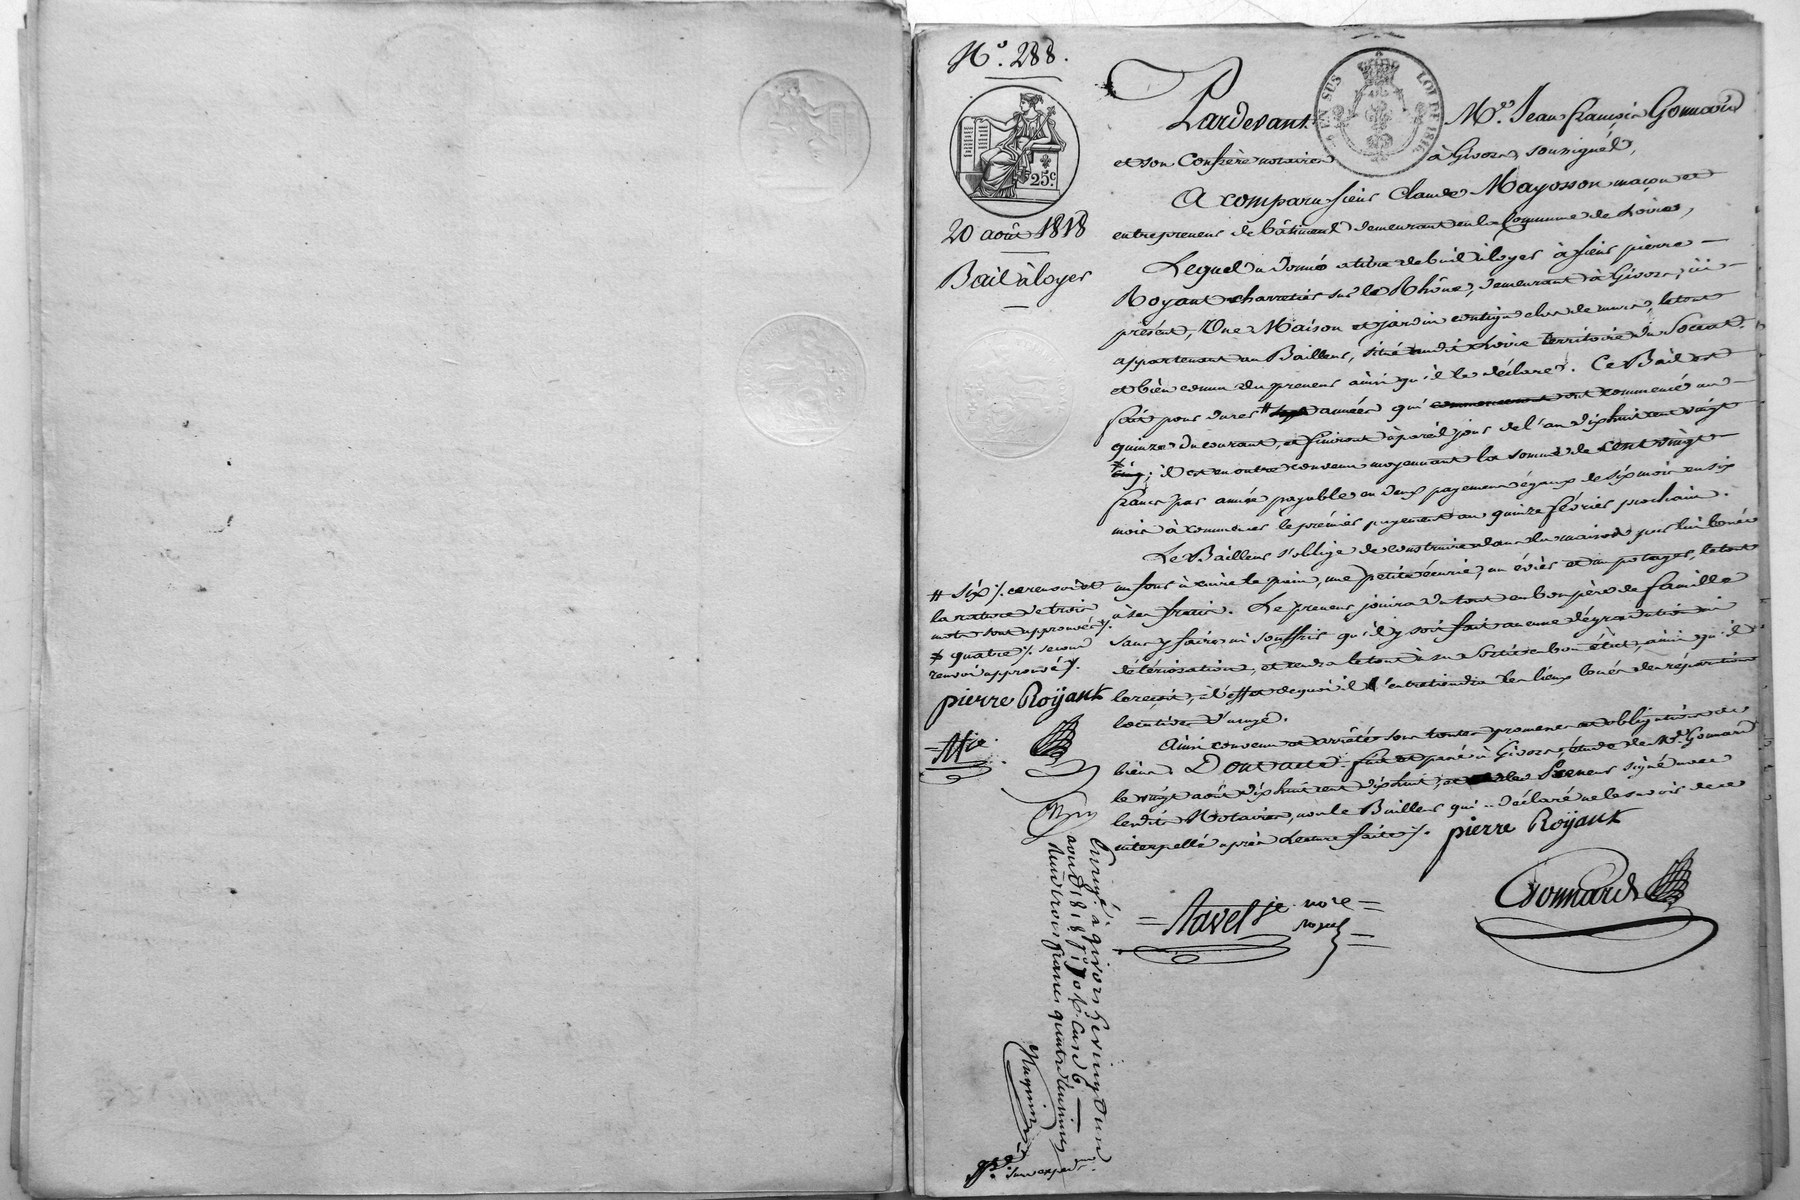 N.° 288.
25.c
20 août 1818
Bail à loyer
EN SUS LOI DE 1816
Pardevant M.e Jean françois Gonnard
et son Confrère notaires à Givors, soussignés,
A comparu sieur Claude Mayosson maçon et
entrepreneur de bâtiment demeurant en la Commune de Loire,
Lequel a donné à titre de bail à loyer à sieur pierre
Royant charretier sur le Rhône, demeurant à Givors, ici
présent, Une Maison et jardin contigu clos de murs, le tout
appartenant au Bailleur, situé audit Loire territoire du
et bien connu du preneur ainsi qu'il le déclare. Ce Bail est
fait pour durer # années qui ont commencé au
quinze du courant, et finiront à pareil jour de l'an dix huit cent vingt
; il est en outre convenu moyennant la somme de cent vingt
francs par année payable en deux payemens égaux de six mois en six
mois à commencer le prémier payement au quinze février prochain.
Le Bailleur s'oblige de construire dans la maison par lui louée
un four à cuire le pain, une petite écurie, un évier et un potager, le tout
à ses frais. Le preneur jouira du tout en bon père de famille
sans y faire ni souffrir qu'il y soit fait aucune dégradation ni
détérioration, et rendra le tout à sa sortie en bon état, ainsi qu'il
le reçoit, à l'effet de quoi il entretiendra les lieux loués des réparations
locatives d'usage.
Ainsi convenu et arrêté sous toutes promesses et obligations de
biens. Dont acte fait et passé à Givors, étude de M.e Gonnard
le vingt août dix huit cent dix huit, et le Preneur signé avec
lesdits Notaires, non le Bailleur qui a déclaré ne le savoir de ce
interpellé après Lecture faite ./.
pierre Roÿant
# six ./. ce renvoi et
la rature de trois
mots sont approuvés ./.
quatre ./. second
renvoi approuvé ./.
pierre Roÿant
Navel je no.re
royal
Gonnard
Enrégé à givors le vingt un
aout 1818 f.° 170 V. Case 6
Reçu trois francs quatre